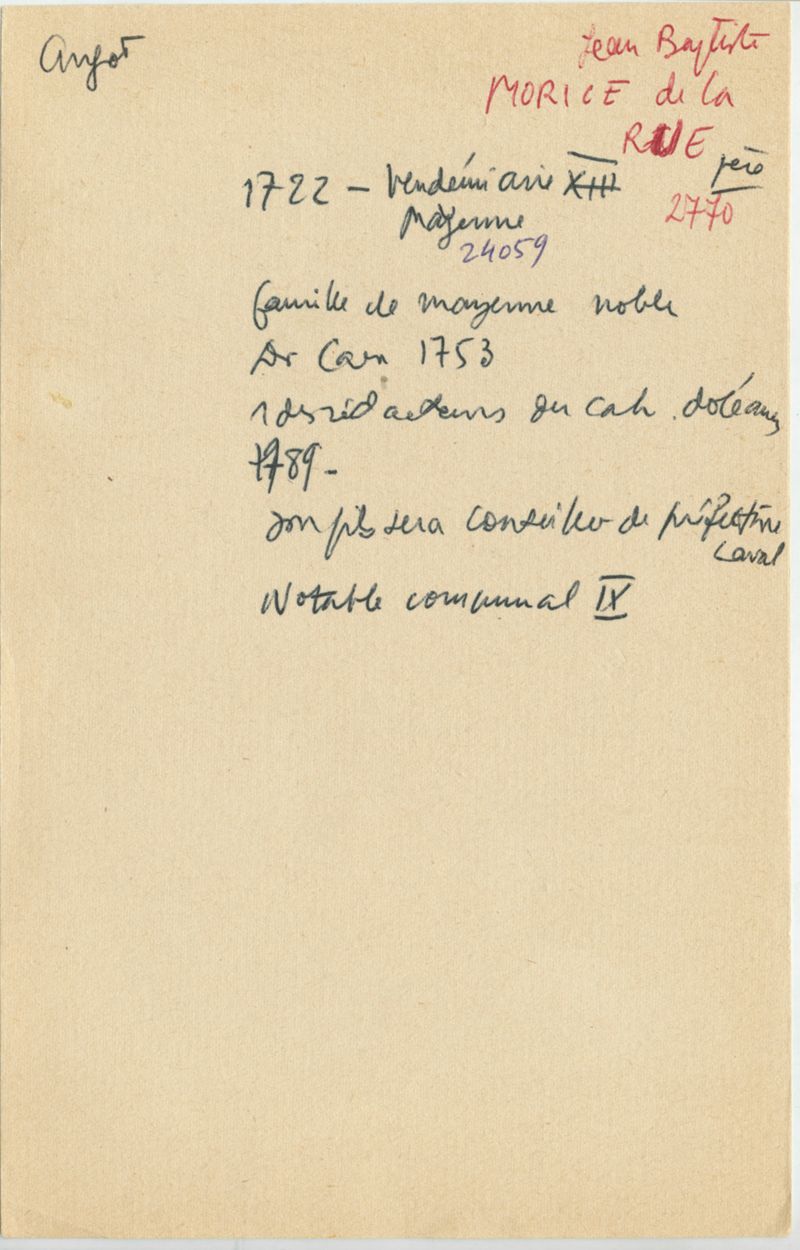 Angot
Jean Baptiste
MORICE de la
RUE
père
1722 - Vendémiaire XIII
2770
Mayenne
24059
famille de mayenne noble
Dr Caen 1753
1 des rédacteurs du cah. doléances
1789 -
son fils sera Conseiller de préfecture
Laval
Notable communal IX